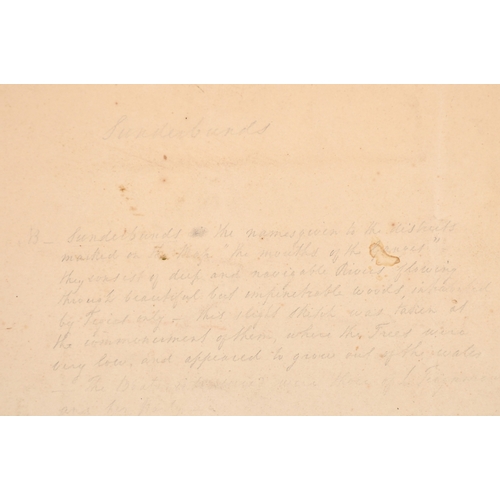 Sunderbunds
13 - Sunderbunds is the names given to the districts
marked on the Map "the mouths of the Ganges"
they consist of deep and navigable Rivers, flowing
through beautiful but impenetrable woods, inhabited
by ferine only - this slight sketch was taken at
the commencement of them, where the Trees were
very low, and appeared to grow out of the water
- The Boats
and